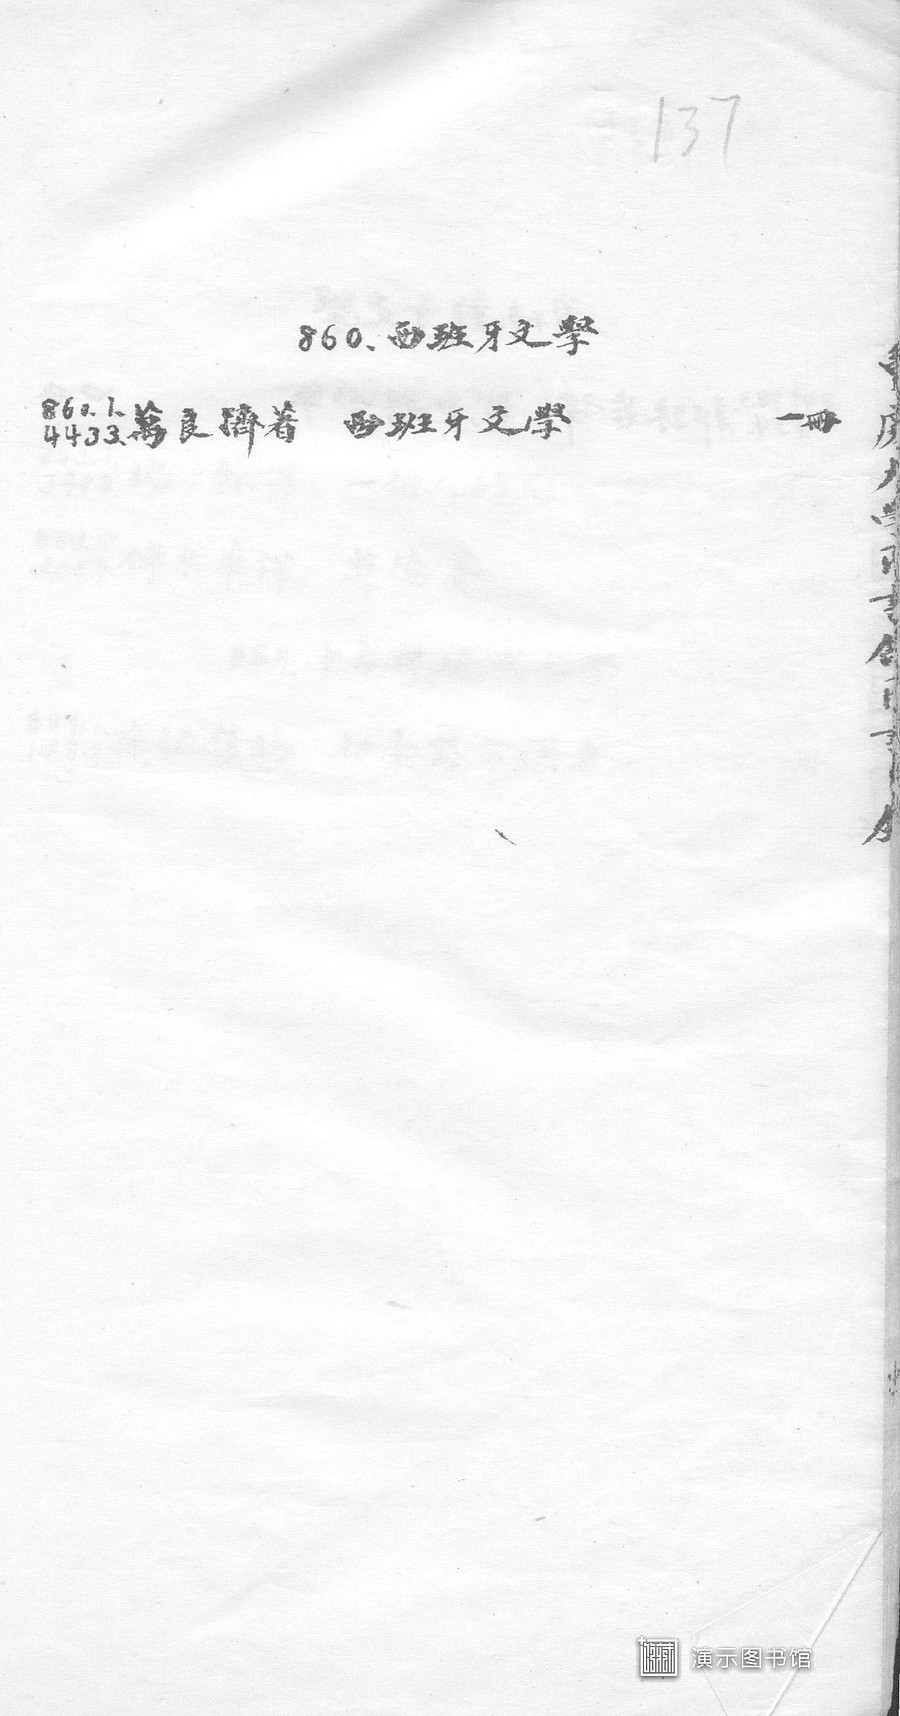 137
860.西班牙文學
860.1.
4433.萬良濬著 西班牙文學 一冊
演示图书馆